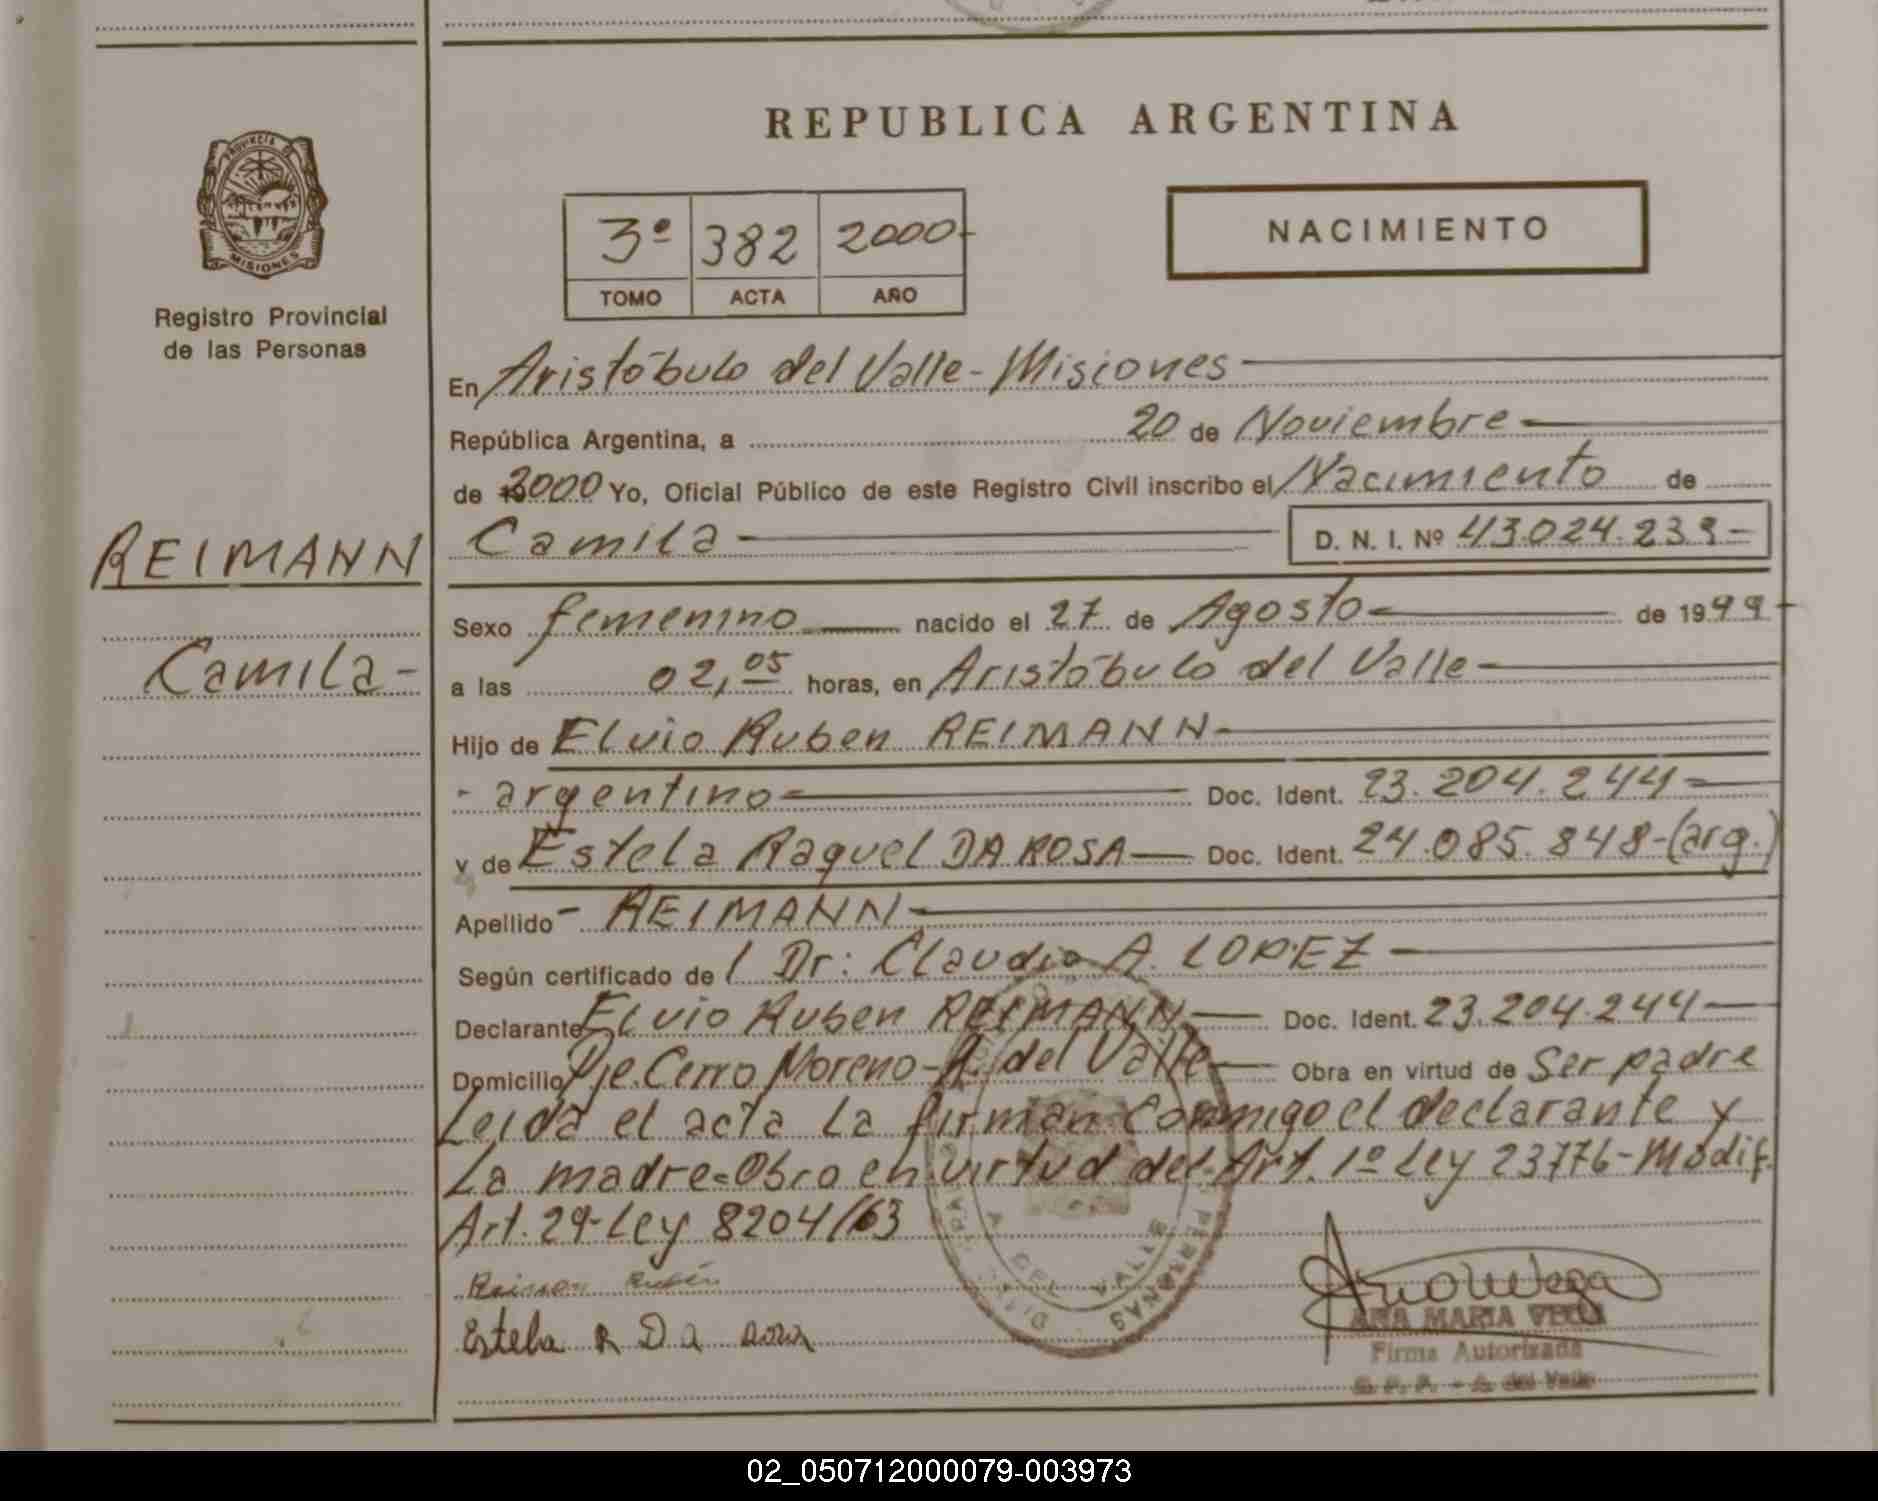 REPUBLICA ARGENTINA
PROVINCIA DE
MISIONES
Registro Provincial
de las Personas
3º 382 2000
TOMO ACTA AÑO
NACIMIENTO
En Aristóbulo del Valle - Misiones
República Argentina, a 20 de Noviembre
de 2000 Yo, Oficial Público de este Registro Civil inscribo el Nacimiento de
Camila D. N. I. Nº 43.024.239-
REIMANN
Camila-
Sexo femenino nacido el 27 de Agosto de 1999
a las 02,05 horas, en Aristóbulo del Valle
Hijo de Elvio Ruben REIMANN
- argentino Doc. Ident. 23.204.244
y de Estela Raquel DA ROSA Doc. Ident. 24.085.848-(arg.)
Apellido - REIMANN
Según certificado de Dr: Claudio A. LOPEZ
Declarante Elvio Ruben REIMANN Doc. Ident. 23.204.244
Domicilio Pje. Cerro Moreno - A. del Valle Obra en virtud de Ser padre
Leida el acta la firman conmigo el declarante y
La madre=Obro en virtud del Art. 1º Ley 23776-Modif.
Art. 29-Ley 8204/63
Reiman Rubén
Estela R Da Rosa
PERSONAS
A. DEL VALLE
ANA MARIA VEGA
Firma Autorizada
R. P. P. - A. del Valle
02_050712000079-003973